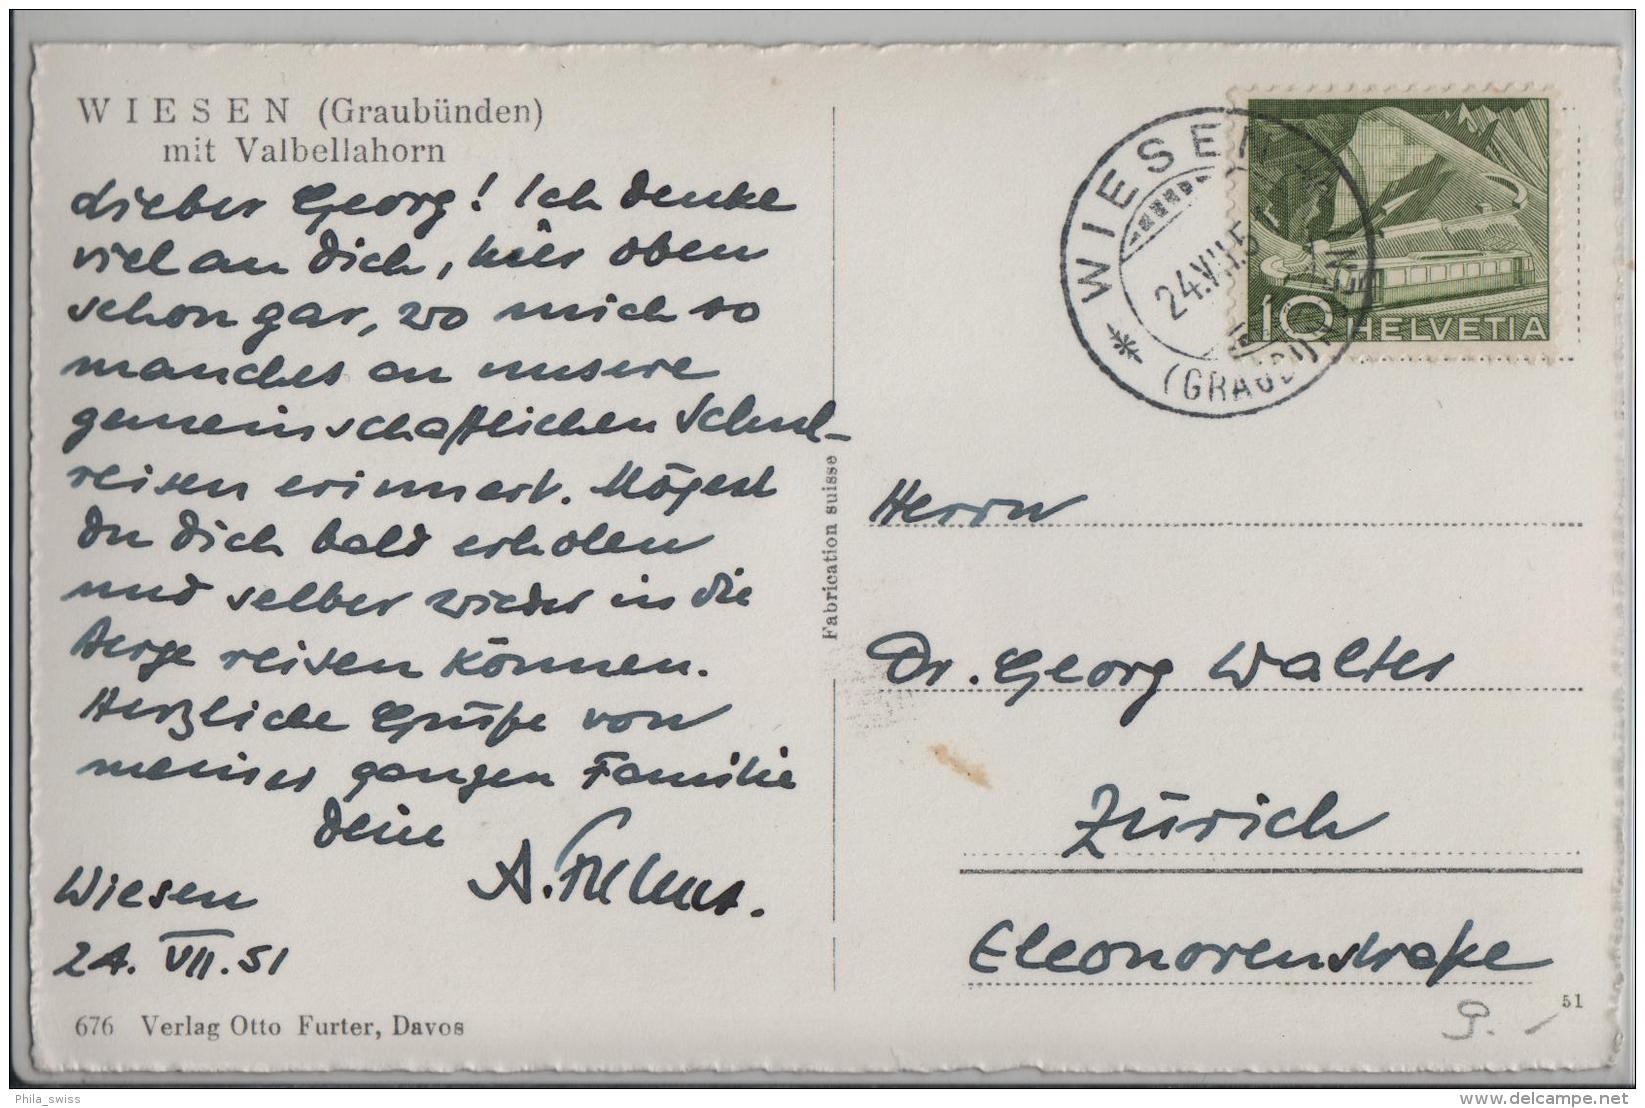 WIESEN (Graubünden)
mit Valbellahorn
Lieber Georg! Ich denke
viel an Dich, hier oben
schon gar, wo mich so
manches an unsere
gemeinschaftlichen Schul-
reisen erinnert. Mögest
Du Dich bald erholen
und selber wieder in die
Berge reisen können.
Herzliche Grüße von
meiner ganzen Familie
Dein
A.
Wiesen
24. VII. 51
676 Verlag Otto Furter, Davos
Fabrication suisse
WIESEN
24.VII.51
(GRAUBÜNDEN)
10 HELVETIA
Herrn
Dr. Georg Walter
Zürich
Eleonorenstraße
51
Phila_swiss
www.delcampe.net